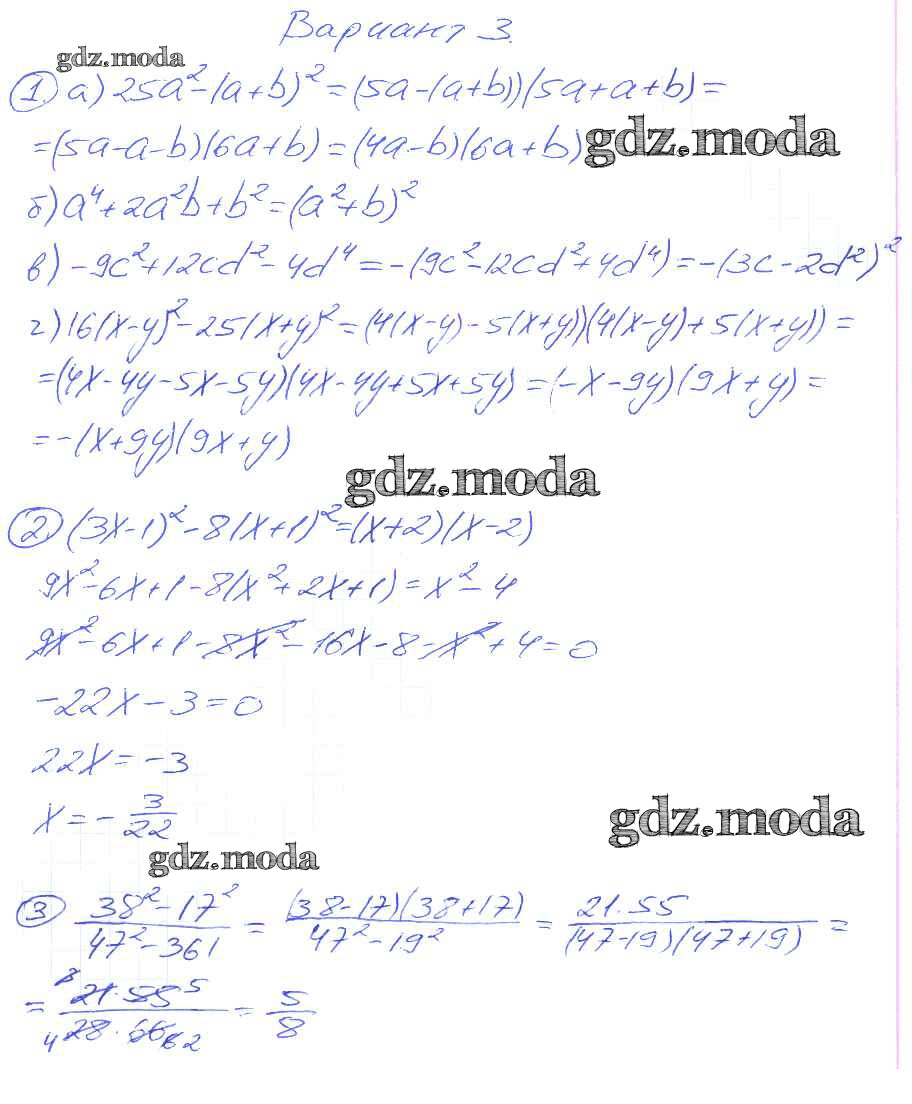 Вариант 3.
gdz.moda
1. а) 25a² - (a + b)² = (5a - (a + b))(5a + a + b) =
= (5a - a - b)(6a + b) = (4a - b)(6a + b) gdz.moda
б) a⁴ + 2a²b + b² = (a² + b)²
в) -9c² + 12cd² - 4d⁴ = -(9c² - 12cd² + 4d⁴) = -(3c - 2d²)²
г) 16(x - y)² - 25(x + y)² = (4(x - y) - 5(x + y))(4(x - y) + 5(x + y)) =
= (4x - 4y - 5x - 5y)(4x - 4y + 5x + 5y) = (-x - 9y)(9x + y) =
= -(x + 9y)(9x + y)
gdz.moda
2 (3x - 1)² - 8(x + 1)² = (x + 2)(x - 2)
9x² - 6x + 1 - 8(x² + 2x + 1) = x² - 4
9x² - 6x + 1 - 8x² - 16x - 8 - x² + 4 = 0
-22x - 3 = 0
22x = -3
x = - 3/22
gdz.moda
gdz.moda
3 (38² - 17²)/(47² - 361) = ((38 - 17)(38 + 17))/(47² - 19²) = (21 · 55)/((47 - 19)(47 + 19)) =
= (21 · 55)/(28 · 66) = 5/8